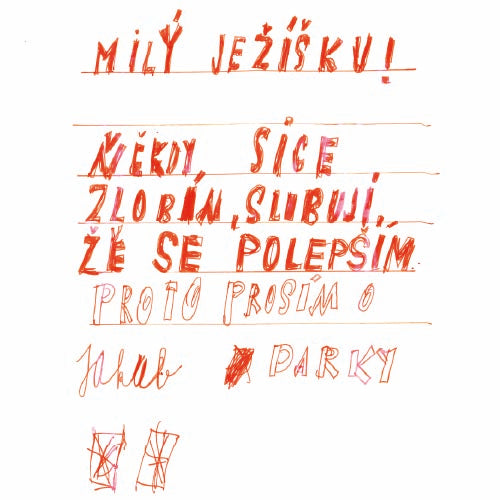 MILÝ JEŽÍŠKU!
NĚKDY SICE
ZLOBÍM, SLUBUJI,
ŽĚ SE POLEPŠÍM.
PROTO PROSÍM O
Jakub DARKY